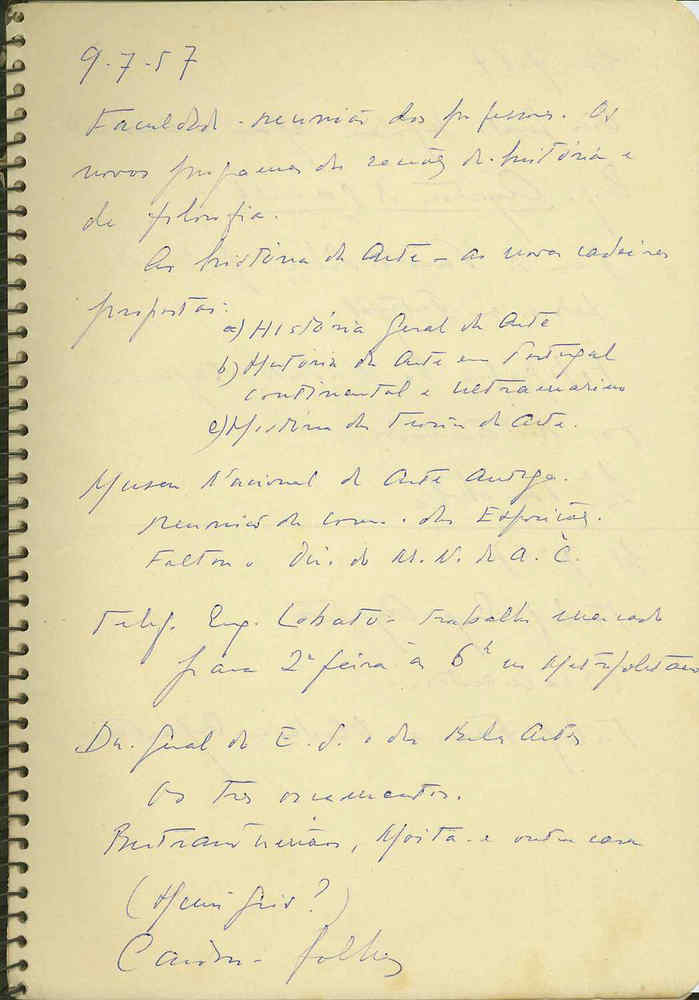 9.7.57
Faculdade - reunião dos professores. Os
novos programas das secções de história e
de filosofia.
As história da Arte - as novas cadeiras
propostas:
a) História Geral da Arte
b) História da Arte em Portugal
continental e ultramarino
c) História da Teoria da Arte.
Museu Nacional de Arte Antiga.
reunião da com. das Exposições.
Faltou o Dir. do M. N. de A. C.
Telef. Eng. Lobato - trabalho marcado
para 2ª feira às 6h no Metropolitano
Dir. Geral do E. S. e das Belas Artes
Os três orçamentos.
, Moita e outra casa
(Henri Gris?)
Cardoso -